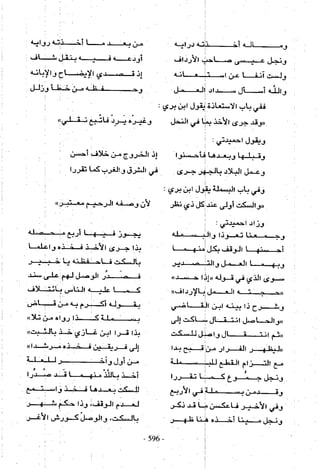 ومـــالـــه أخـــذتـه درايه من بعـــد مـــا أخـــذتـه روايه
ونجل عيـــسى صـــاحب الأرداف أودعـــه فـــيـــه بنقل شـــاف
ولست آنفـــا عن اســـتـــعـــانـه إذ قـــصـــدي الإيضـــاح والإبانـه
والله أســـأل ســـداد العـــمـــل وحـــفظـه من خطـــأ وزلل
ففي باب الاستعاذة يقول ابن بري :
«وقد جرى الأخذ بما في النحل وغيره يرد فاتبع نقلي»
ويقول احميدتي :
وقبلها وبعدها فأحسنوا إذ الخروج من خلاف أحسن
وعمل البلاد بالجهر جرى في الشرق والغرب كما تقررا
وفي باب البسملة يقول ابن بري :
«والسكت أولى عند كل ذي نظر لأن وصفه الرحيم معتبر»
وزاد احميدتي :
وجمعنا تعوذا والبسمله يجوز فيها أربع محصله
أحسنها الوقف بكل منهما بذا جرى الأخذ فخذه واعلما
وبهما العمل والتصدير بالسكت فاحفظنه يا خبير
سوى الذي في قوله «إذا حسد» فصدر الوصل لهم على سند
حجته العمل بالأرداف كما عليه الناس بائتلاف
وشرح ذا بينه ابن القاضي بقوله أكرم به من قاض
«والحاصل انتقال ساكت إلى بسملة كذا رواه من تلا»
«ثم انتقال واصل للسكت بذا قرا ابن غازي خذ بالثبت»
ليظهر الفرار من قبح بدا إلى فريقين فخذه مرشدا»
مع التزام القطع للبسملة من أول وآخر للعلة
ونجل جموع كما تقررا أخذ باللذ منهما قد صدرا
وقدمن بسملة في الأربع للسكت بعدها فخذ واستمع
وفي الأخير فاعكس ما قد ذكر لعدم الوقف، وذا حكم شهر
ونجل مينا أخذه هنا ظهر بالسكت، والوصل كورش الأغر
- 596 -